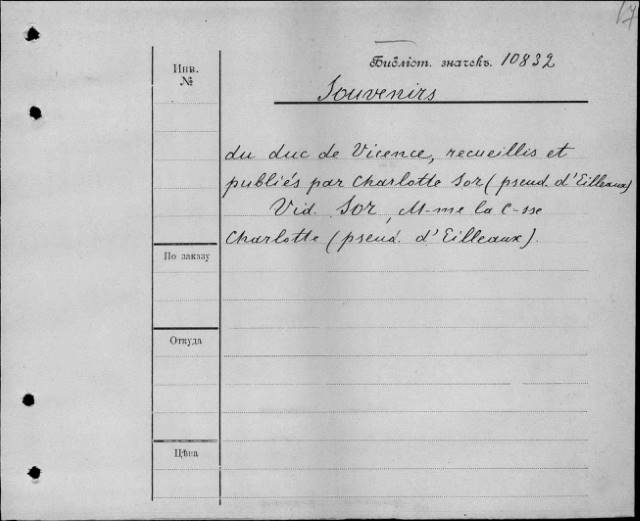 17
Библіот. значекъ. 10832
Инв.
№
Souvenirs
du duc de Vicence, recueillis et
publiés par Charlotte Sor (pseud. d'Eilleaux)
Vid. Sor, M-me la C-sse
Charlotte (pseud. d'Eilleaux).
По заказу
Откуда
Цѣна